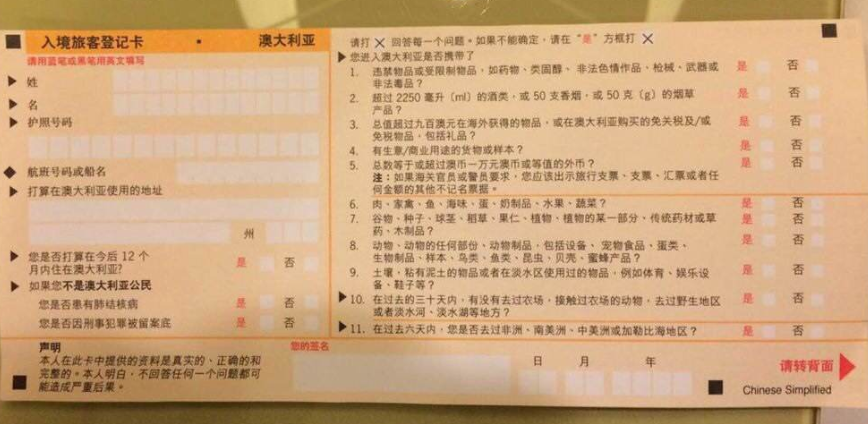 入境旅客登记卡 • 澳大利亚
请用蓝笔或黑笔用英文填写
姓
名
护照号码
航班号码或船名
打算在澳大利亚使用的地址
州
您是否打算在今后 12 个
月内住在澳大利亚? 是 否
如果您不是澳大利亚公民
您是否患有肺结核病 是 否
您是否因刑事犯罪被留案底 是 否
请打 X 回答每一个问题。如果不能确定,请在“是”方框打 X
您进入澳大利亚是否携带了
1. 违禁物品或受限制物品,如药物、类固醇、非法色情作品、枪械、武器或 是 否
非法毒品?
2. 超过 2250 毫升(ml)的酒类,或 50 支香烟,或 50 克(g)的烟草 是 否
产品?
3. 总值超过九百澳元在海外获得的物品,或在澳大利亚购买的免关税及/或 是 否
免税物品,包括礼品?
4. 有生意/商业用途的货物或样本? 是 否
5. 总数等于或超过澳币一万元澳币或等值的外币? 是 否
注:如果海关官员或警员要求,您应该出示旅行支票、支票、汇票或者任
何金额的其他不记名票据。
6. 肉、家禽、鱼、海味、蛋、奶制品、水果、蔬菜? 是 否
7. 谷物、种子、球茎、稻草、果仁、植物、植物的某一部分、传统药材或草 是 否
药、木制品?
8. 动物、动物的任何部份、动物制品,包括设备、宠物食品、蛋类、 是 否
生物制品、样本、鸟类、鱼类、昆虫、贝壳、蜜蜂产品?
9. 土壤,粘有泥土的物品或者在淡水区使用过的物品,例如体育、娱乐设 是 否
备、鞋子等?
10. 在过去的三十天内,有没有去过农场,接触过农场的动物,去过野生地区 是 否
或者淡水河、淡水湖等地方?
11. 在过去六天内,您是否去过非洲、南美洲、中美洲或加勒比海地区? 是 否
声明
本人在此卡中提供的资料是真实的、正确的和
完整的。本人明白,不回答任何一个问题都可
能造成严重后果。
您的签名
日 月 年
请转背面
Chinese Simplified